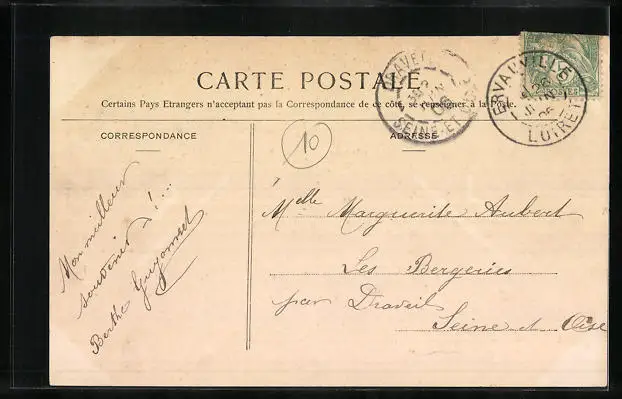 CARTE POSTALE
Certains Pays Etrangers n'acceptant pas la Correspondance de ce côté, se renseigner à la Poste.
CORRESPONDANCE
ADRESSE
10
ERVAUVILLE
LOIRET
SEINE-ET-OISE
Mon meilleur
souvenir
Berthe
Melle Marguerite Aubert
Les Bergeries
par Draveil
Seine et Oise